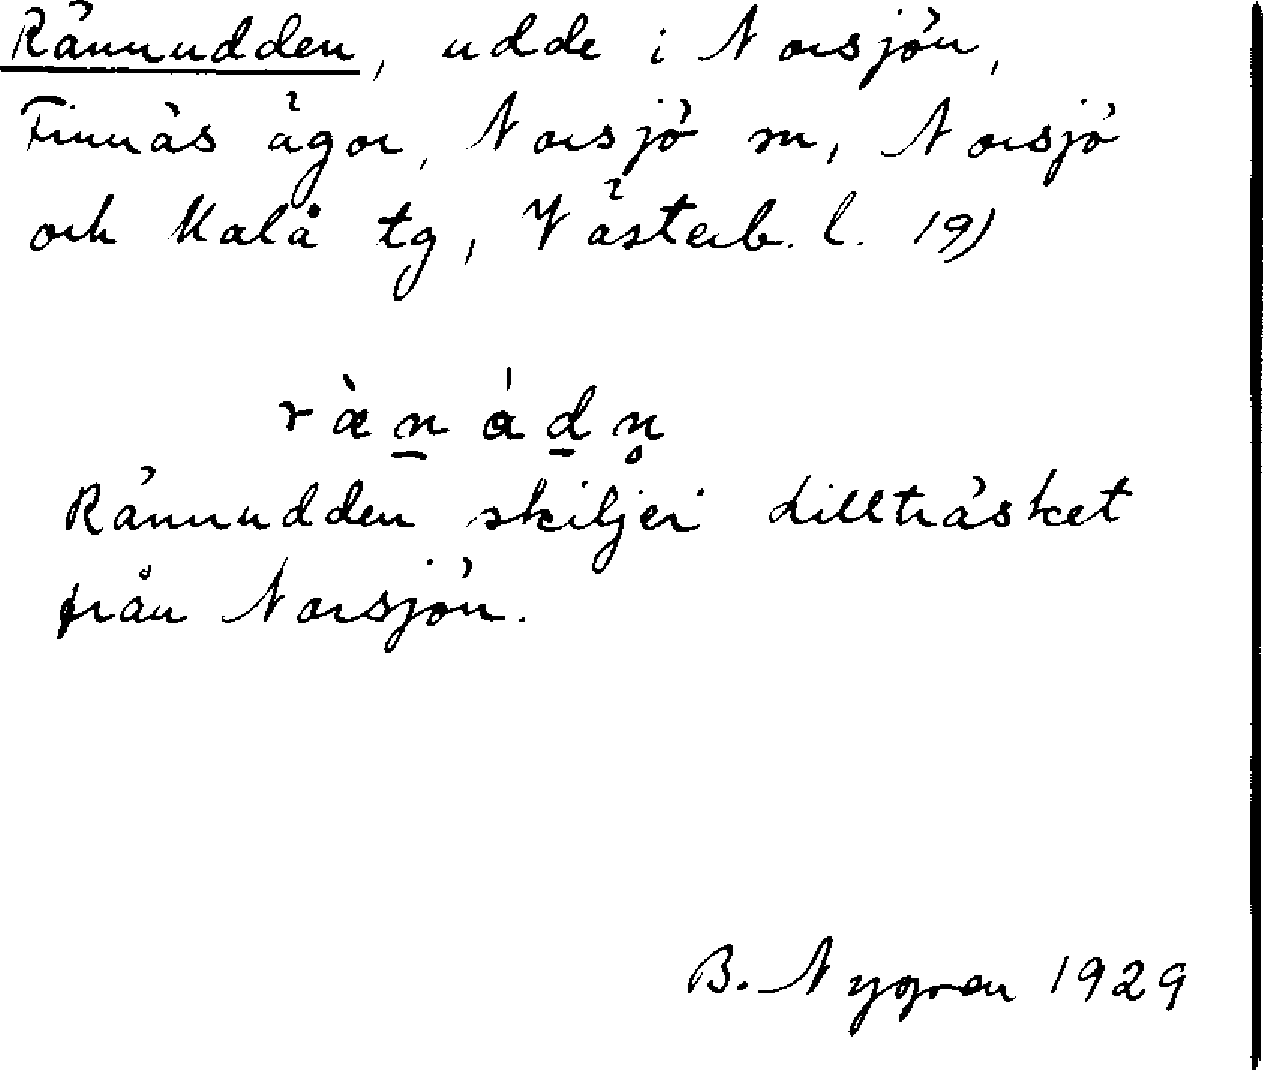 Rännudden, udde i Norsjön,
Finnäs ägor, Norsjö sn, Norsjö
och Malå tg, Västerb. l. 19)
ræ̀n̲ ád̲n̥
Rännudden skiljer Lillträsket
från Norsjön.
B. Nygren 1929